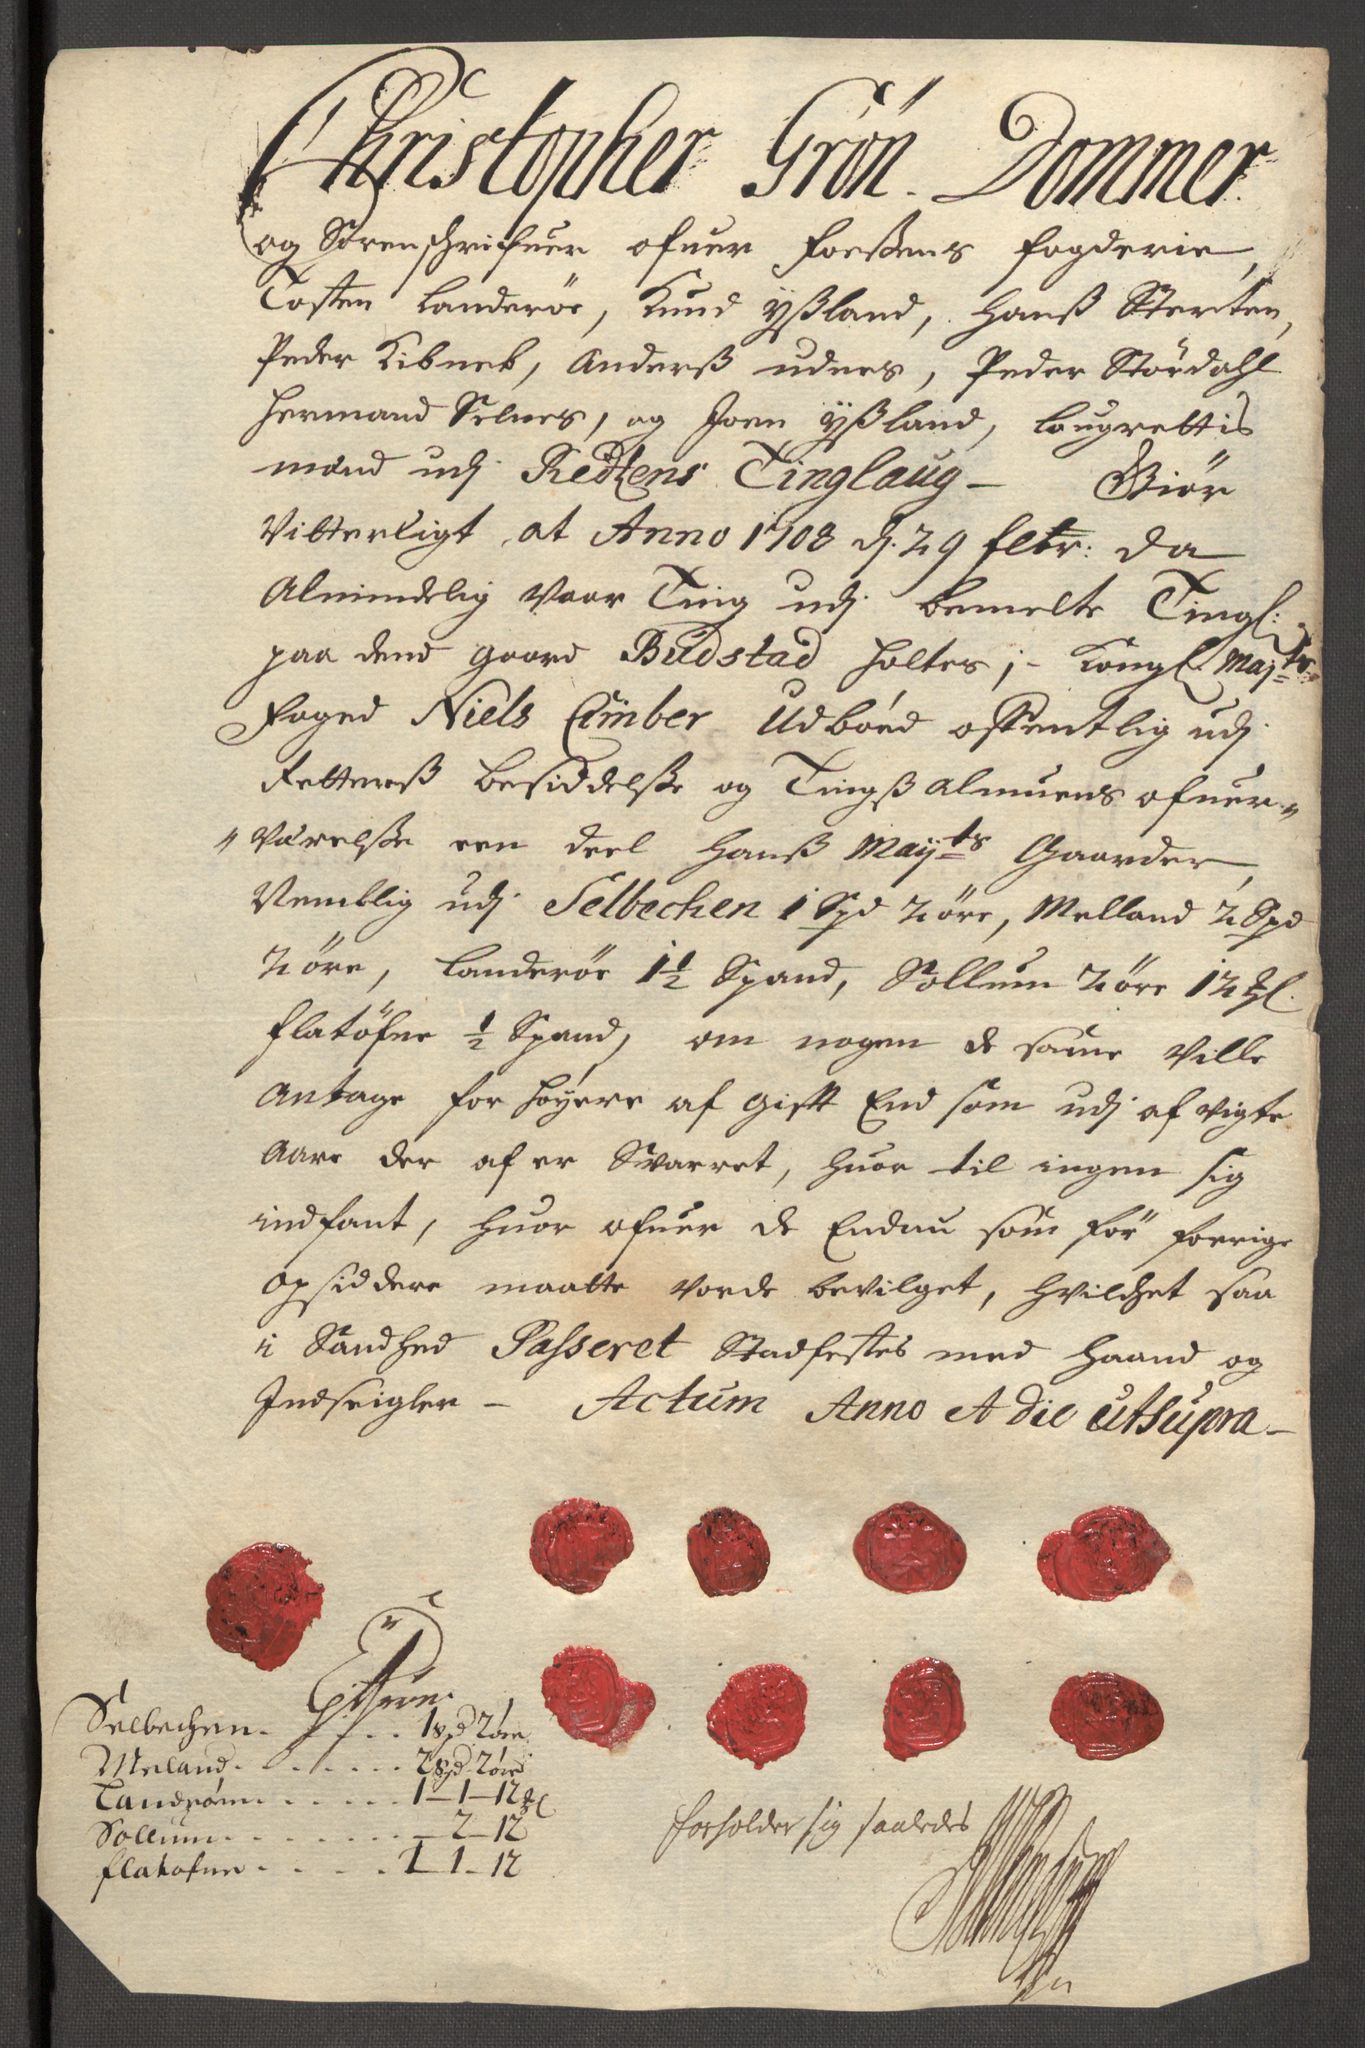 Christopher Grön Dommer
og Sorenschrifuer ofuer Foessens fogderie,
Tosten Landeröe, Knud Ÿßland, Hanß Sterten,
Peder Kibnes, Anderß udnes, Peder Stördahl
Hermand Selnes, og Joen Ÿßland, Laugrettis
mænd udj Redtens Tinglaug — Giör
Vitterligt at Anno 1708 d. 29 febr: da
Almindelig Vaar Ting udj bemelte Tingl:
paa dend gaard Budstad holtes ;- Kongl Mayts
Foged Niels Cimber Udböed offentlig udj
Rettenß besiddelße og Tingß almuens ofuer„
„Værelße een deel Hanß Mayts Gaarder,
Nemblig udj Selbechen 1 Spd 2 öre, Melland 2 Spd
2 öre, Landeröe 1½ Spand, Sollum 2 öre 12 ℳl.
flatöfne ½ Spand, om nogen de samme Ville
Antage for höyere af gift End som udj af vigte
Aare der af er Svarret, huor til ingen sig
indfant, huor ofuer de Endnu som för forrige
opsiddere maatte vorde bevilget, hvilchet saa
i Sandhed Passeret Stadfestes med Haand og
Indseigler – Actum Anno et die utsupra —
CGrön
Selbechen . . . . 1 spd 2 öre
Meland . . . . . 2 spd 2 öre
Landröen . . . . . 1 – 1 – 12 ℳl
Sollum . . . . . . – 2 – 12
flatofne . . . . . – 1 – 12
forholder sig saaledes